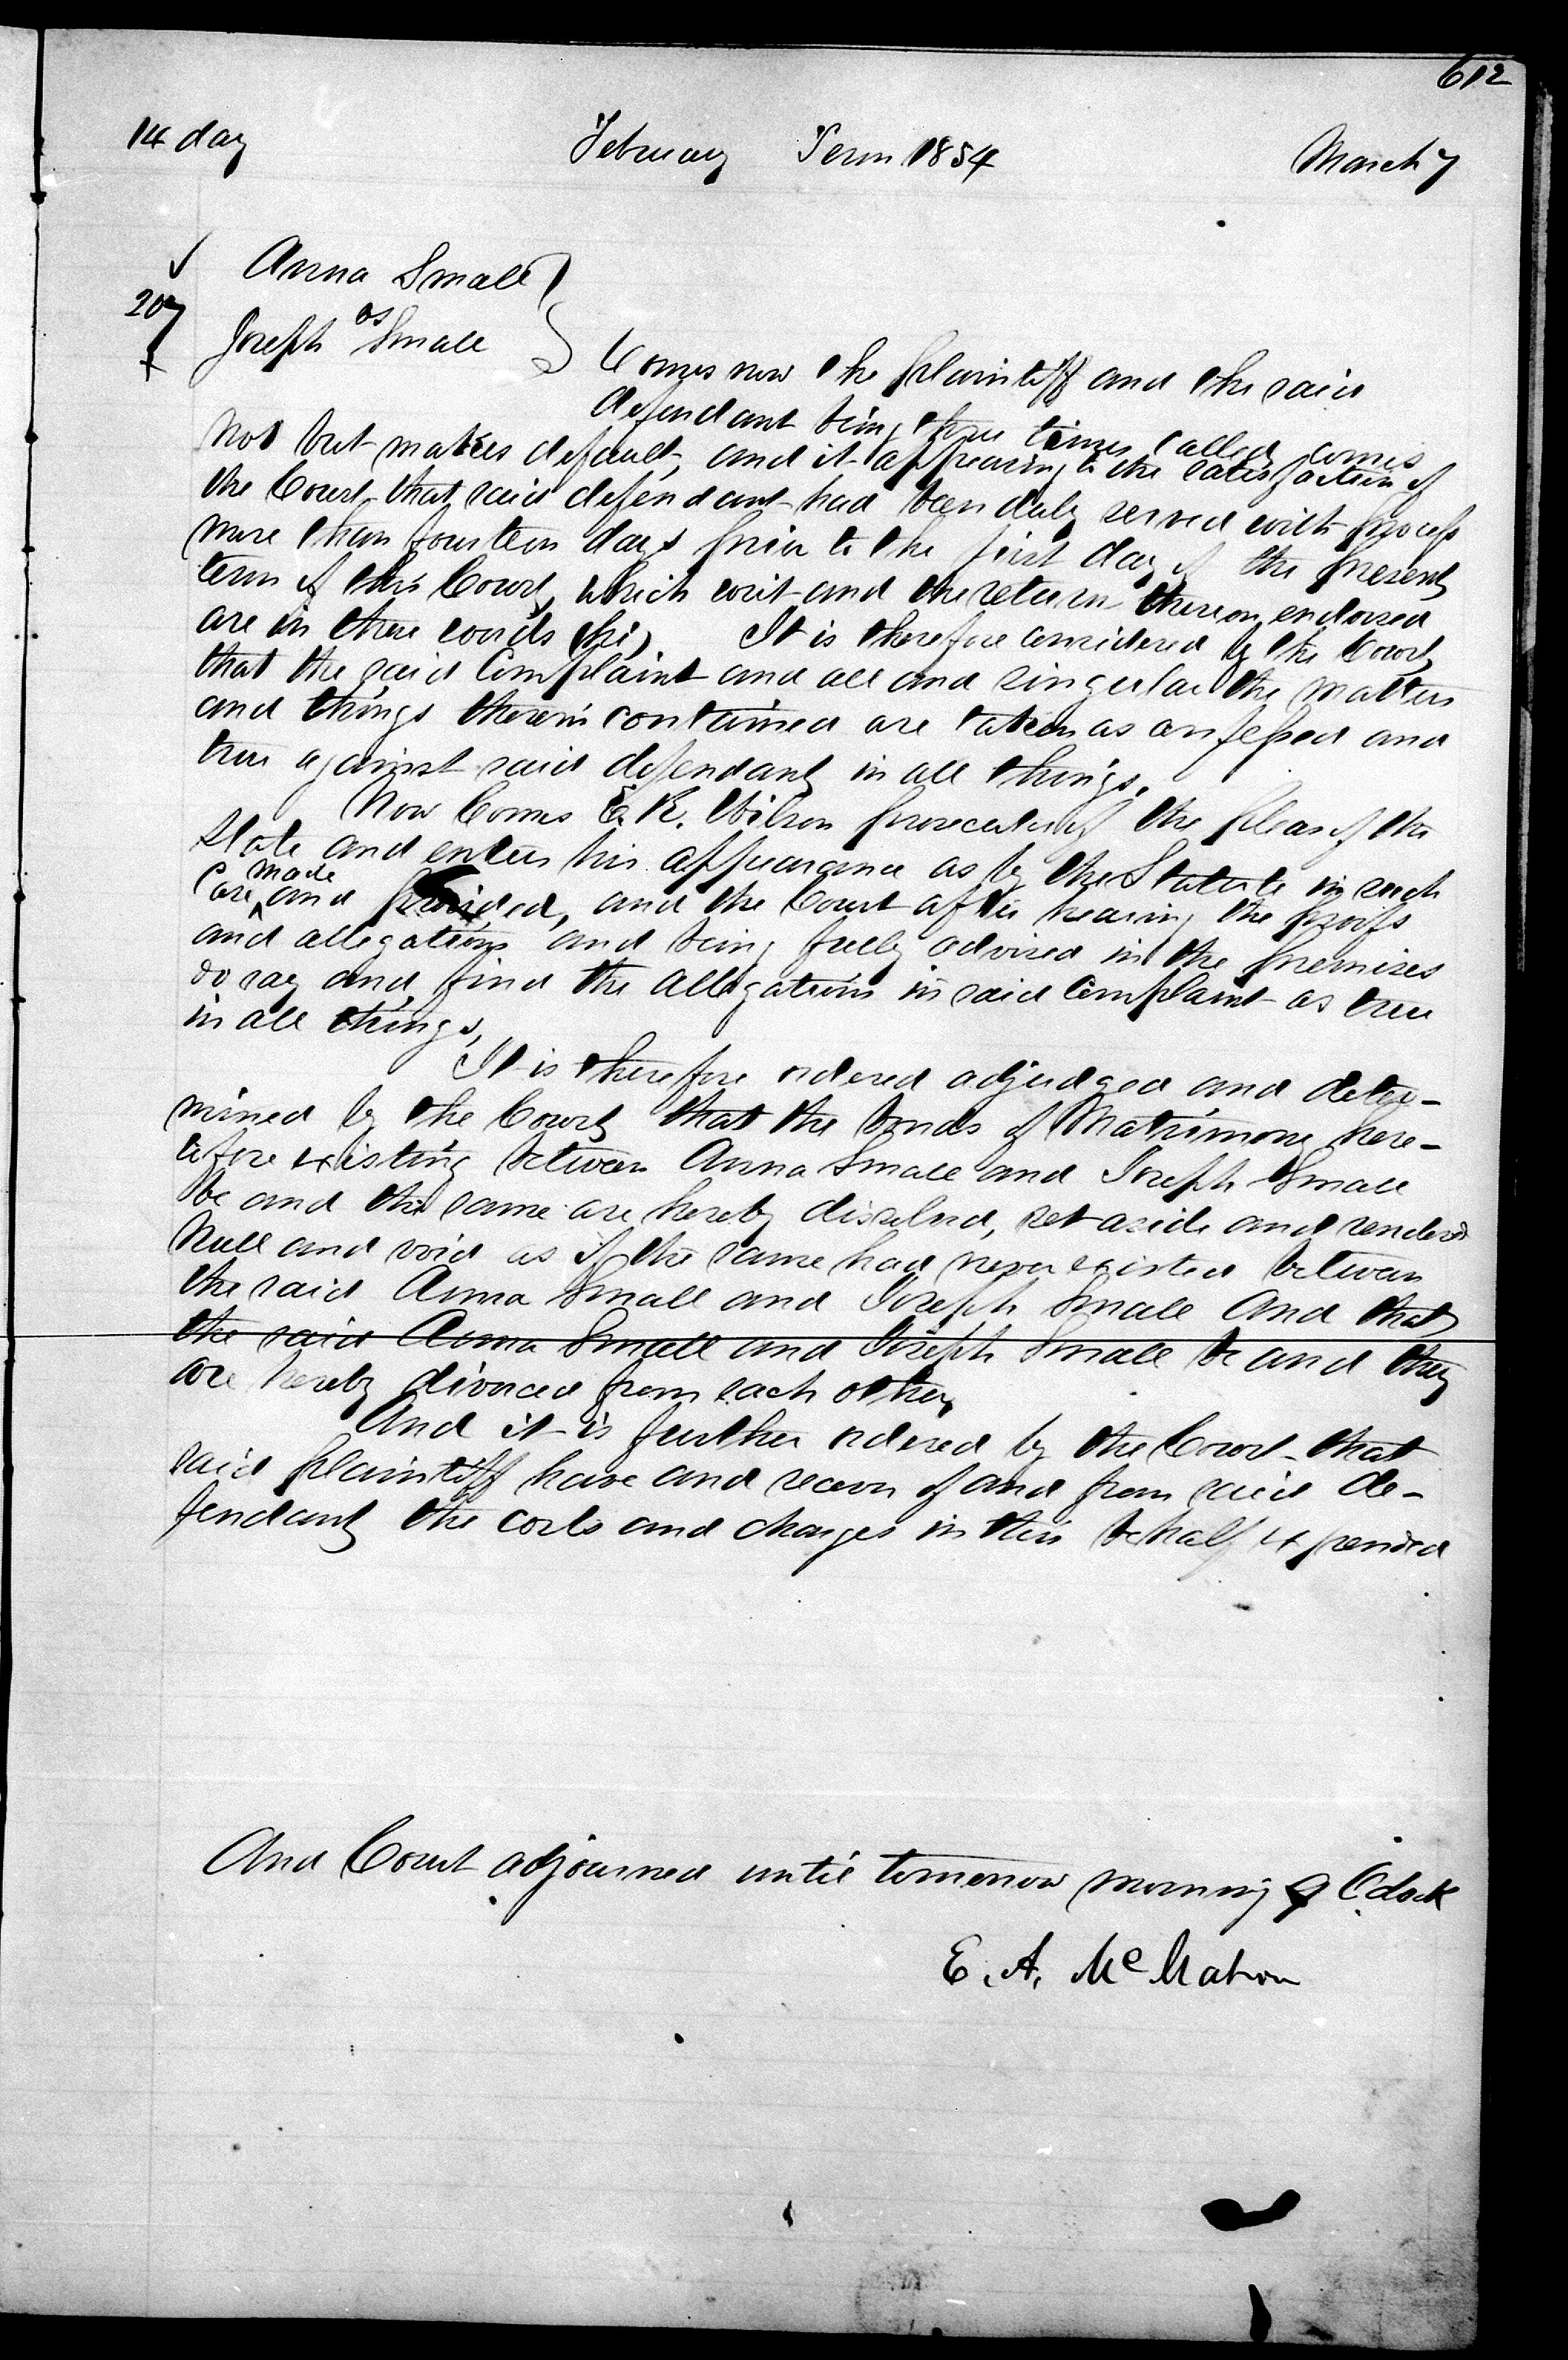 612
14 day February Term 1854 March 7
Anna Small
207 vs
Joseph Small
Comes now the plaintiff and the said
defendant being three times called comes
not but makes default, and it appearing to the satisfaction of
the Court that said defendant had been duly served with process
more than fourteen days prior to the first day of the present
term of this Court, which writ and the return thereon endorsed
are in these words to wit; It is therefore considered by the Court,
that the said Complaint and all and singular the matters
and things therein contained are taken as confessed and
true against said defendant in all things.
Now Comes E. R. Wilson prosecuting the pleas of the
State and enters his appearance as by the Statute in such
made
Case and provided, and the Court after hearing the proofs
and allegations and being fully advised in the premises
do say and find the allegations in said Complaint as true
in all things,
It is therefore ordered adjudged and deter-
mined by the Court that the bonds of Matrimony here-
tofore existing between Anna Small and Joseph Small
be and the same are hereby disolved, set aside and rendered
Null and void as if the same had never existed between
the said Anna Small and Joseph Small And that
the said Anna Small and Joseph Small be and they
are hereby divorced from each other,
And it is further ordered by the Court that
said plaintiff have and recover of and from said de-
fendant the costs and charges in this behalf expended
And Court adjourned until tomorrow morning 9 Oclock
E. A. McMahon